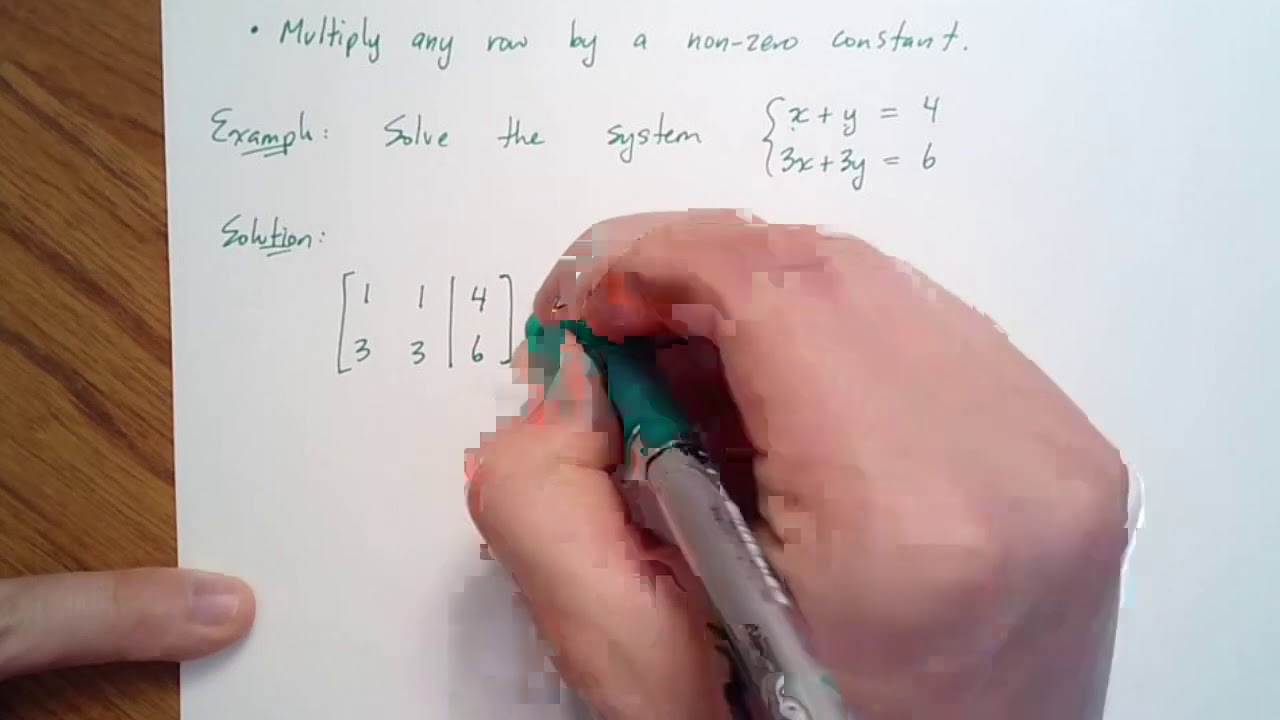 • Multiply any row by a non-zero constant.
Example: Solve the system { x + y = 4
3x + 3y = 6
Solution:
[ 1 1 | 4 ]
[ 3 3 | 6 ]